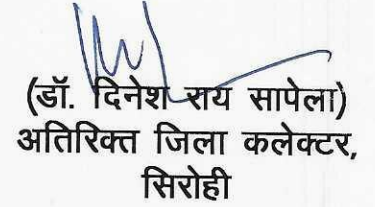 (डॉ. दिनेश राय सापेला)
अतिरिक्त जिला कलेक्टर,
सिरोही